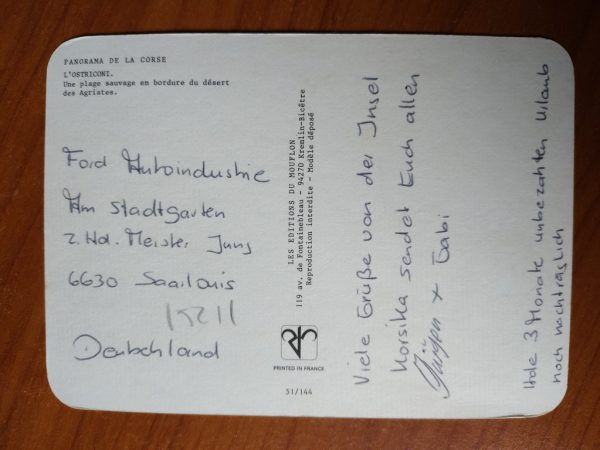 PANORAMA DE LA CORSE
L'OSTRICONI.
Une plage sauvage en bordure du désert
des Agriates.
Ford Autoindustrie
Am Stadtgarten
z. Hd. Meister Jung
6630 Saarlouis
Deutschland
LES EDITIONS DU MOUFLON
119 av. de Fontainebleau - 94270 Kremlin-Bicêtre
Reproduction interdite - Modèle déposé
PRINTED IN FRANCE
51/144
Viele Grüße von der Insel
Korsika sendet Euch allen
Jürgen + Gabi
Hole 3 Monate unbezahlten Urlaub
noch nachträglich